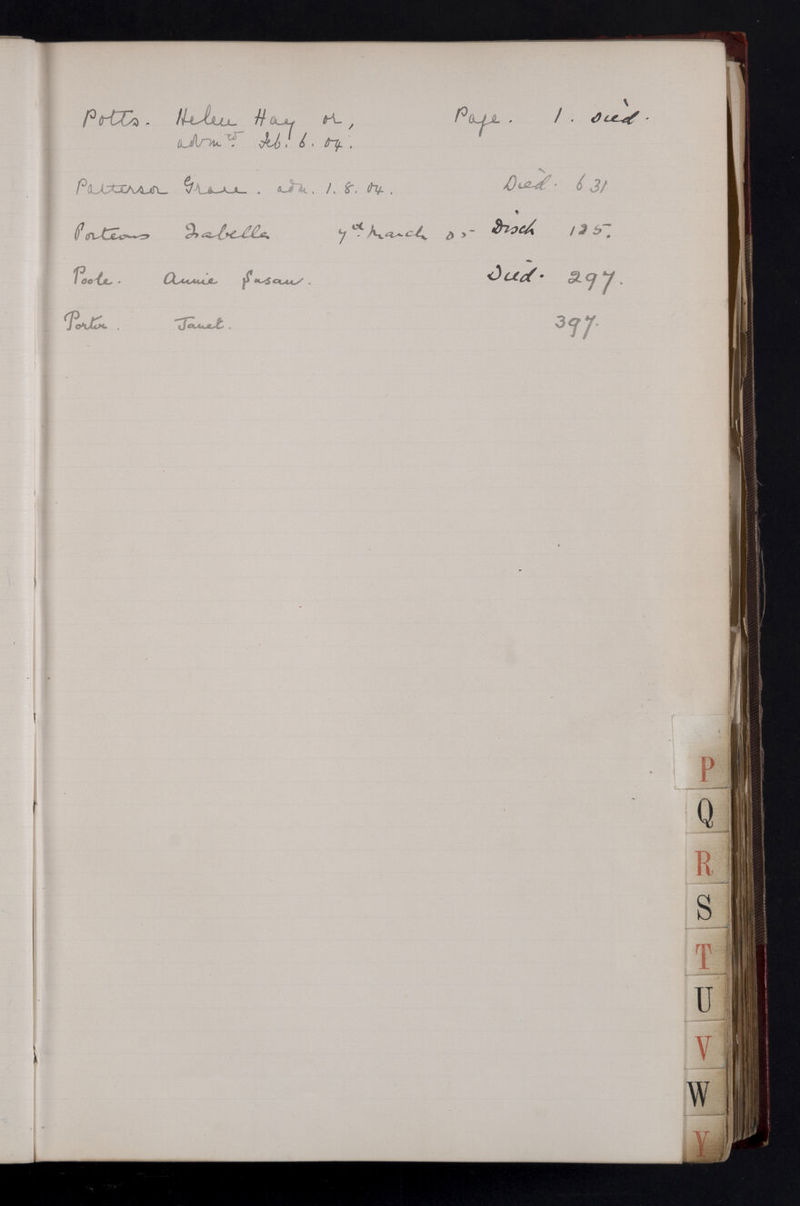 Potts. Helen Hay or, Page. 1. Died.
admtd Feb. 6. 04.
Patterson Grace. adm. 1. 8. 04. Died. 631
Porteous Isabella 7th March 05 Disch 125.
Poole. Annie Susan. Died. 297.
Porter. Janet. 397.
P
Q
R
S
T
U
V
W
Y